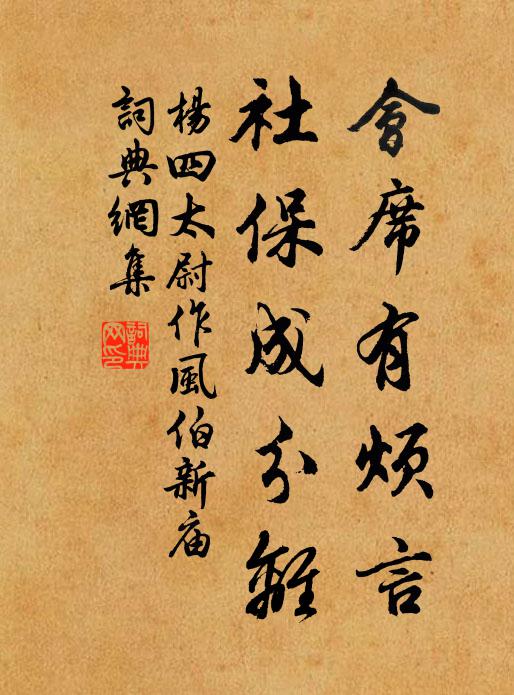 會席有煩言
社保成分離
楊四太尉作風伯新廟
詞典網集
詞典
网印